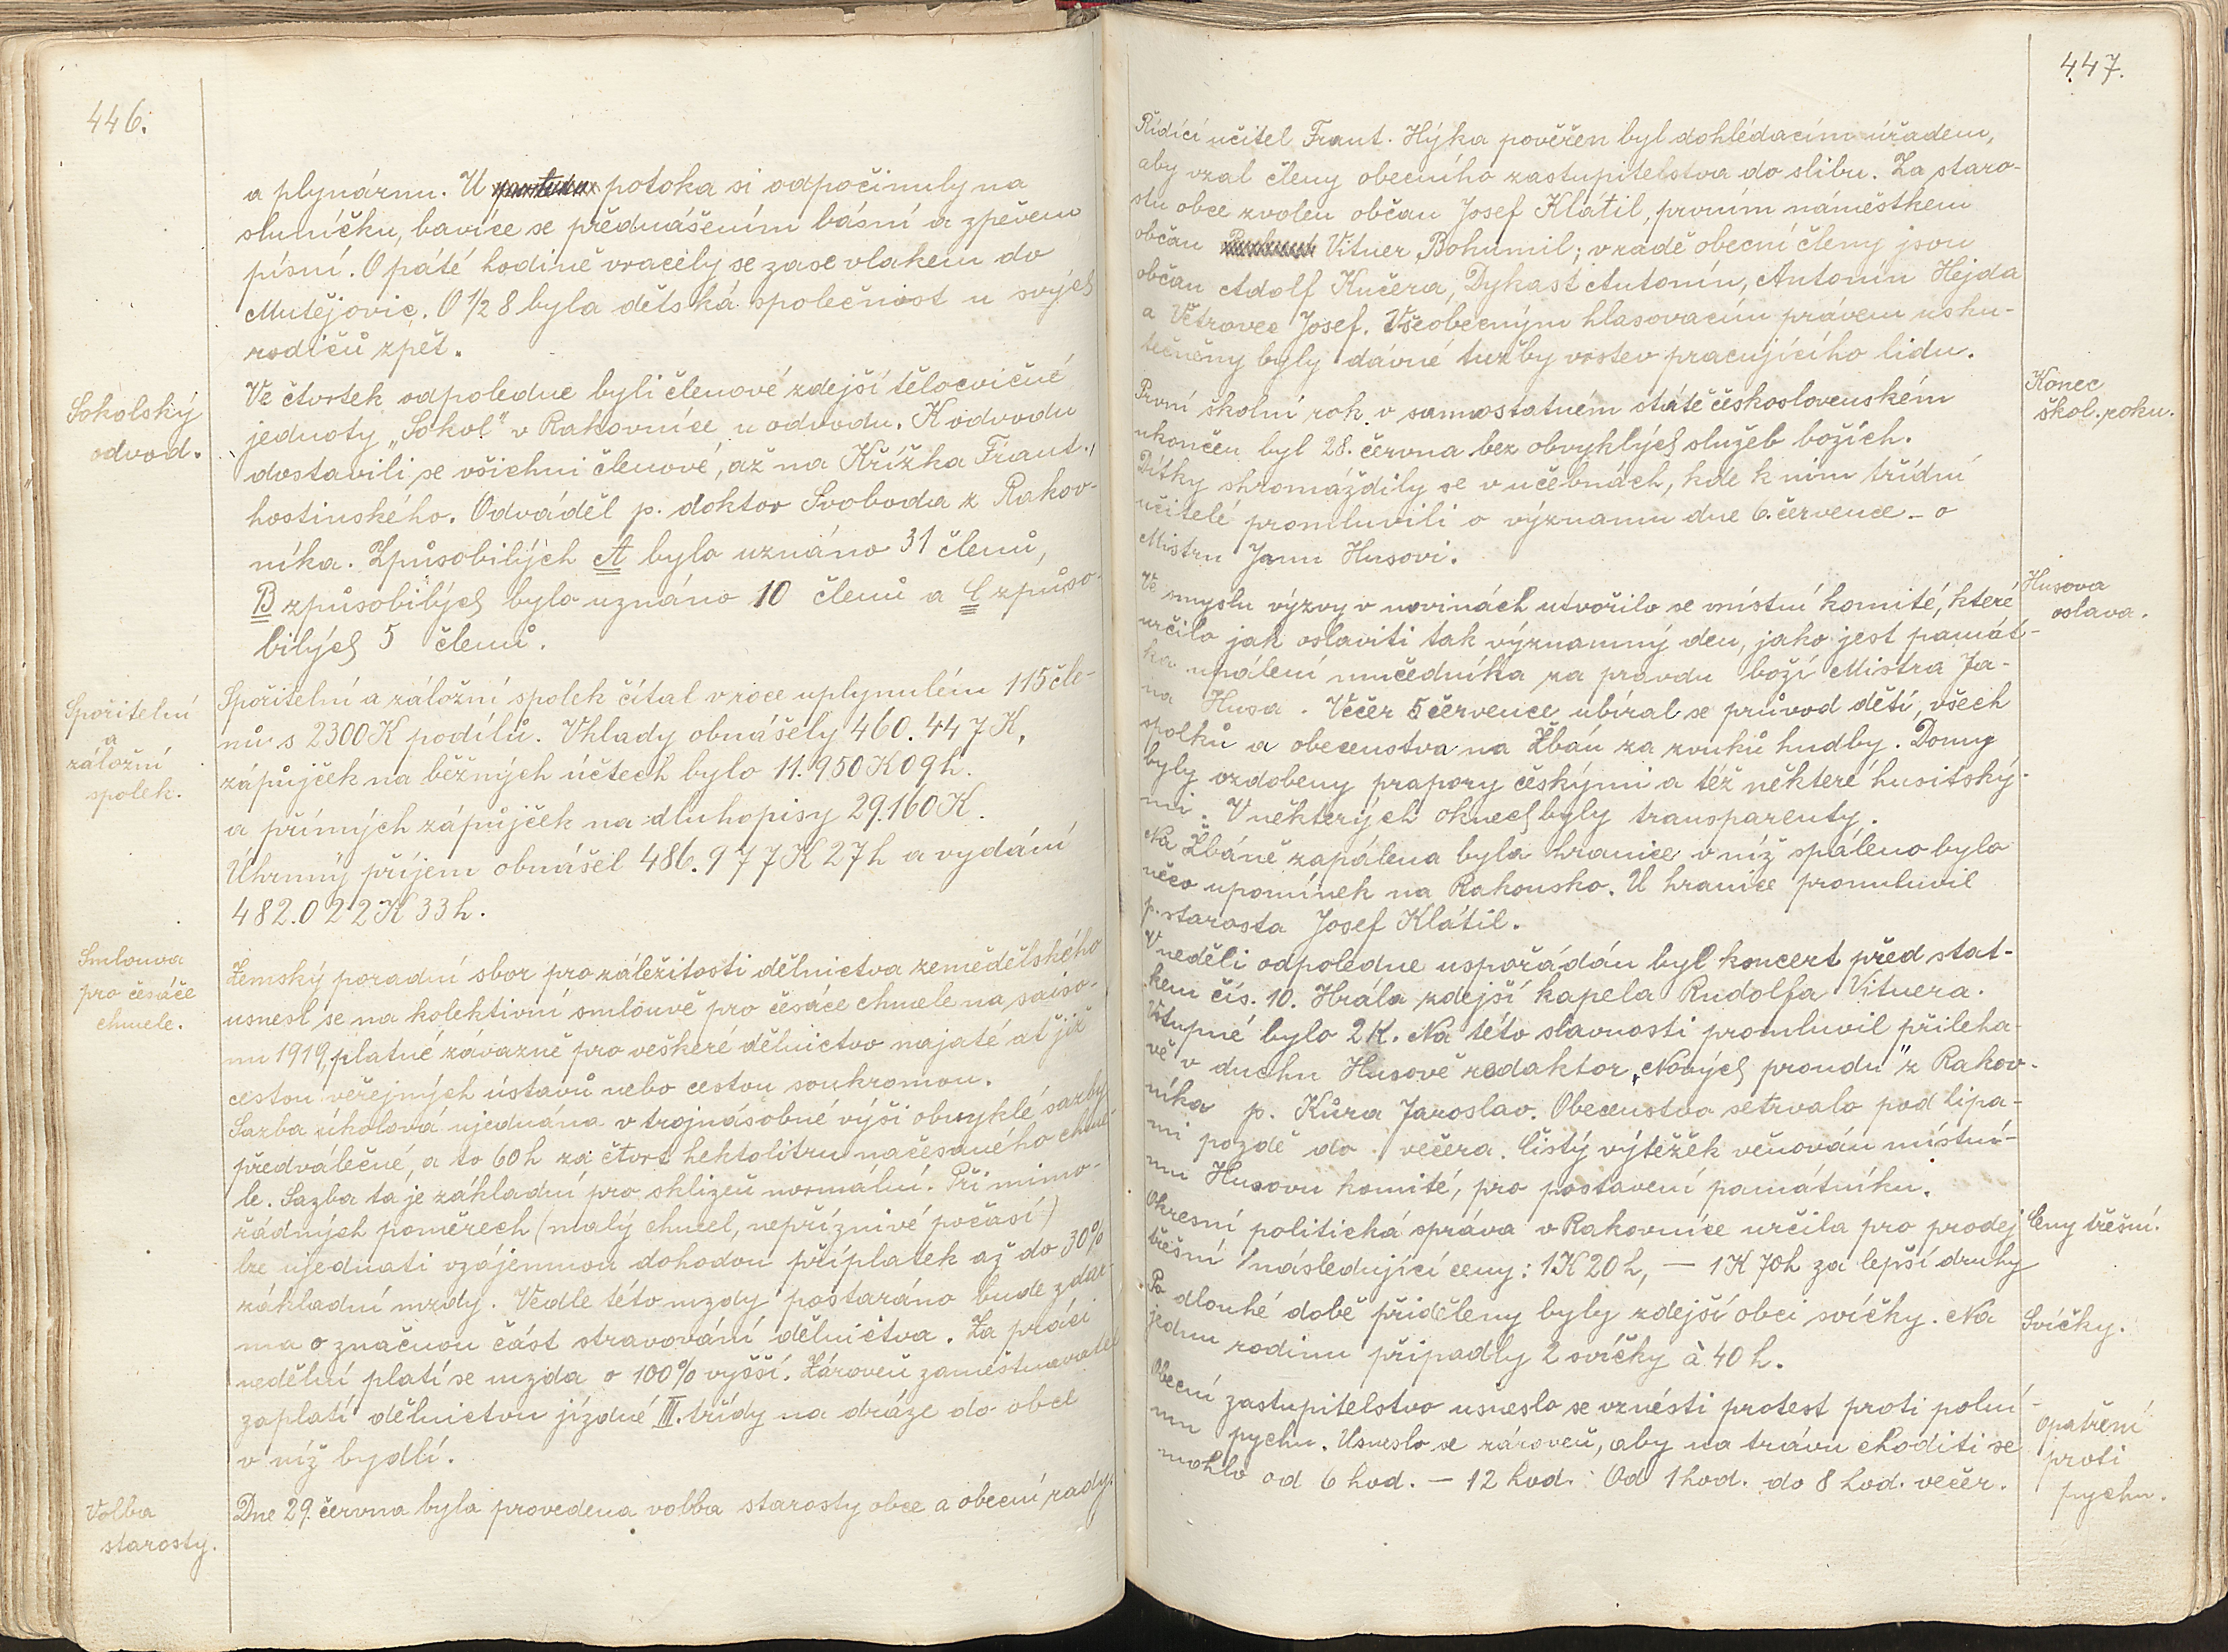 446.
a plynárnu. U potoka si odpočinuly na
sluníčku, bavíce se přednášením básní a zpěvem
písní. O páté hodině vracely se zase vlakem do
Mutějovic. O 1/2 8 byla dětská společnost u svých
rodičů zpět.
Sokolský
odvod.
Ve čtvrtek odpoledne byli členové zdejší tělocvičné
jednoty „Sokol" v Rakovníce u odvodu. K odvodu
dostavili se všichni členové, až na Křížka Frant.,
hostinského. Odváděl p. doktor Svoboda z Rakov-
níka. Zpùsobilých A bylo uznáno 31 členů,
B způsobilých bylo uznáno 10 členů a C způso-
bilých 5 členů.
Spořitelní
a
záložní
spolek.
Spořitelní a záložní spolek čítal v roce uplynulém 115 čle-
nů s 2300 K podílů. Vklady obnášely 460.447 K,
zápůjček na běžných účtech bylo 11.950 K 09 h.
a přímých zápůjček na dluhopisy 29.160 K.
Úhrnný příjem obnášel 486.977 K 27 h a vydání
482.022 K 33 h.
Smlouva
pro česáče
chmele.
Zemský poradní sbor pro záležitosti dělnictva zemědělského
usnesl se na kolektivní smlouvě pro česáče chmele na saiso-
nu 1919, platné závazně pro veškeré dělnictvo najaté ať již
cestou veřejných ústavů nebo cestou soukromou.
Sazba úkolová ujednána v trojnásobné výši obvyklé sazby
předválečné, a to 60 h za čtvrt hektolitru načesaného chme-
le. Sazba ta je základní pro sklizeň normální. Při mimo-
řádných poměrech (malý chmel, nepříznivé počasí)
lze ujednati vzájemnou dohodou příplatek až do 30%
základní mzdy. Vedle této mzdy postaráno bude zdar-
ma o značnou část stravování dělnictva. Za práci
nedělní platí se mzda o 100% vyšší. Zároveň zaměstnavatel
zaplatí dělnictvu jízdné III. třídy na dráze do obce
v níž bydlí.
Volba
starosty.
Dne 29. června byla provedena volba starosty obce a obecní rady.
447.
Řídící učitel Frant. Hýka pověřen byl dohlédacím úřadem,
aby vzal členy obecního zastupitelstva do slibu. Za staro-
stu obce zvolen občan Josef Klátil, prvním náměstkem
občan Vitner Bohumil; v radě obecní členy jsou
občan Adolf Kučera, Dykast Antonín, Antonín Hejda
a Větrovec Josef. Všeobecným hlasovacím právem usku-
tečněny byly dávné tužby vrstev pracujícího lidu.
Konec
škol. roku.
První školní rok v samostatném státě československém
ukončen byl 28. června bez obvyklých služeb božích.
Dítky shromáždily se v učebnách, kde k nim třídní
učitelé promluvili o významu dne 6. července – o
Mistru Janu Husovi.
Husova
oslava.
Ve smyslu výzvy v novinách utvořilo se místní komité, které
určilo jak oslaviti tak významný den, jako jest památ-
ka upálení mučedníka za pravdu boží Mistra Ja-
na Husa. Večer 5 července ubíral se průvod dětí, všech
spolků a obecenstva na Žbáň za zvuků hudby. Domy
byly ozdobeny prapory českými a též některé husitský-
mi. V některých oknech byly transparenty.
Na Žbáně zapálena byla hranice v níž spáleno bylo
něco upomínek na Rakousko. U hranice promluvil
p. starosta Josef Klátil.
V neděli odpoledne uspořádán byl koncert před stat-
kem čís. 10. Hrála zdejší kapela Rudolfa Vitnera.
Vstupné bylo 2 K. Na této slavnosti promluvil přileha-
vě v duchu Husově redaktor „Nových proudů" z Rakov-
níka p. Kůra Jaroslav. Obecenstvo setrvalo pod lipa-
mi pozdě do večera. Čistý výtěžek věnován místní-
mu Husovu komité, pro postavení památníku.
Ceny třešní.
Okresní politická správa v Rakovníce určila pro prodej
třešní následující ceny: 1 K 20 h, — 1 K 70 h za lepší druhy
Svíčky.
Po dlouhé době přiděleny byly zdejší obci svíčky. Na
jednu rodinu připadly 2 svíčky à 40 h.
Opatření
proti
pychu.
Obecní zastupitelstvo usneslo se vznésti protest proti polní-
mu pychu. Usneslo se zároveň, aby na trávu choditi se
mohlo od 6 hod. — 12 hod. Od 1 hod. do 8 hod. večer.